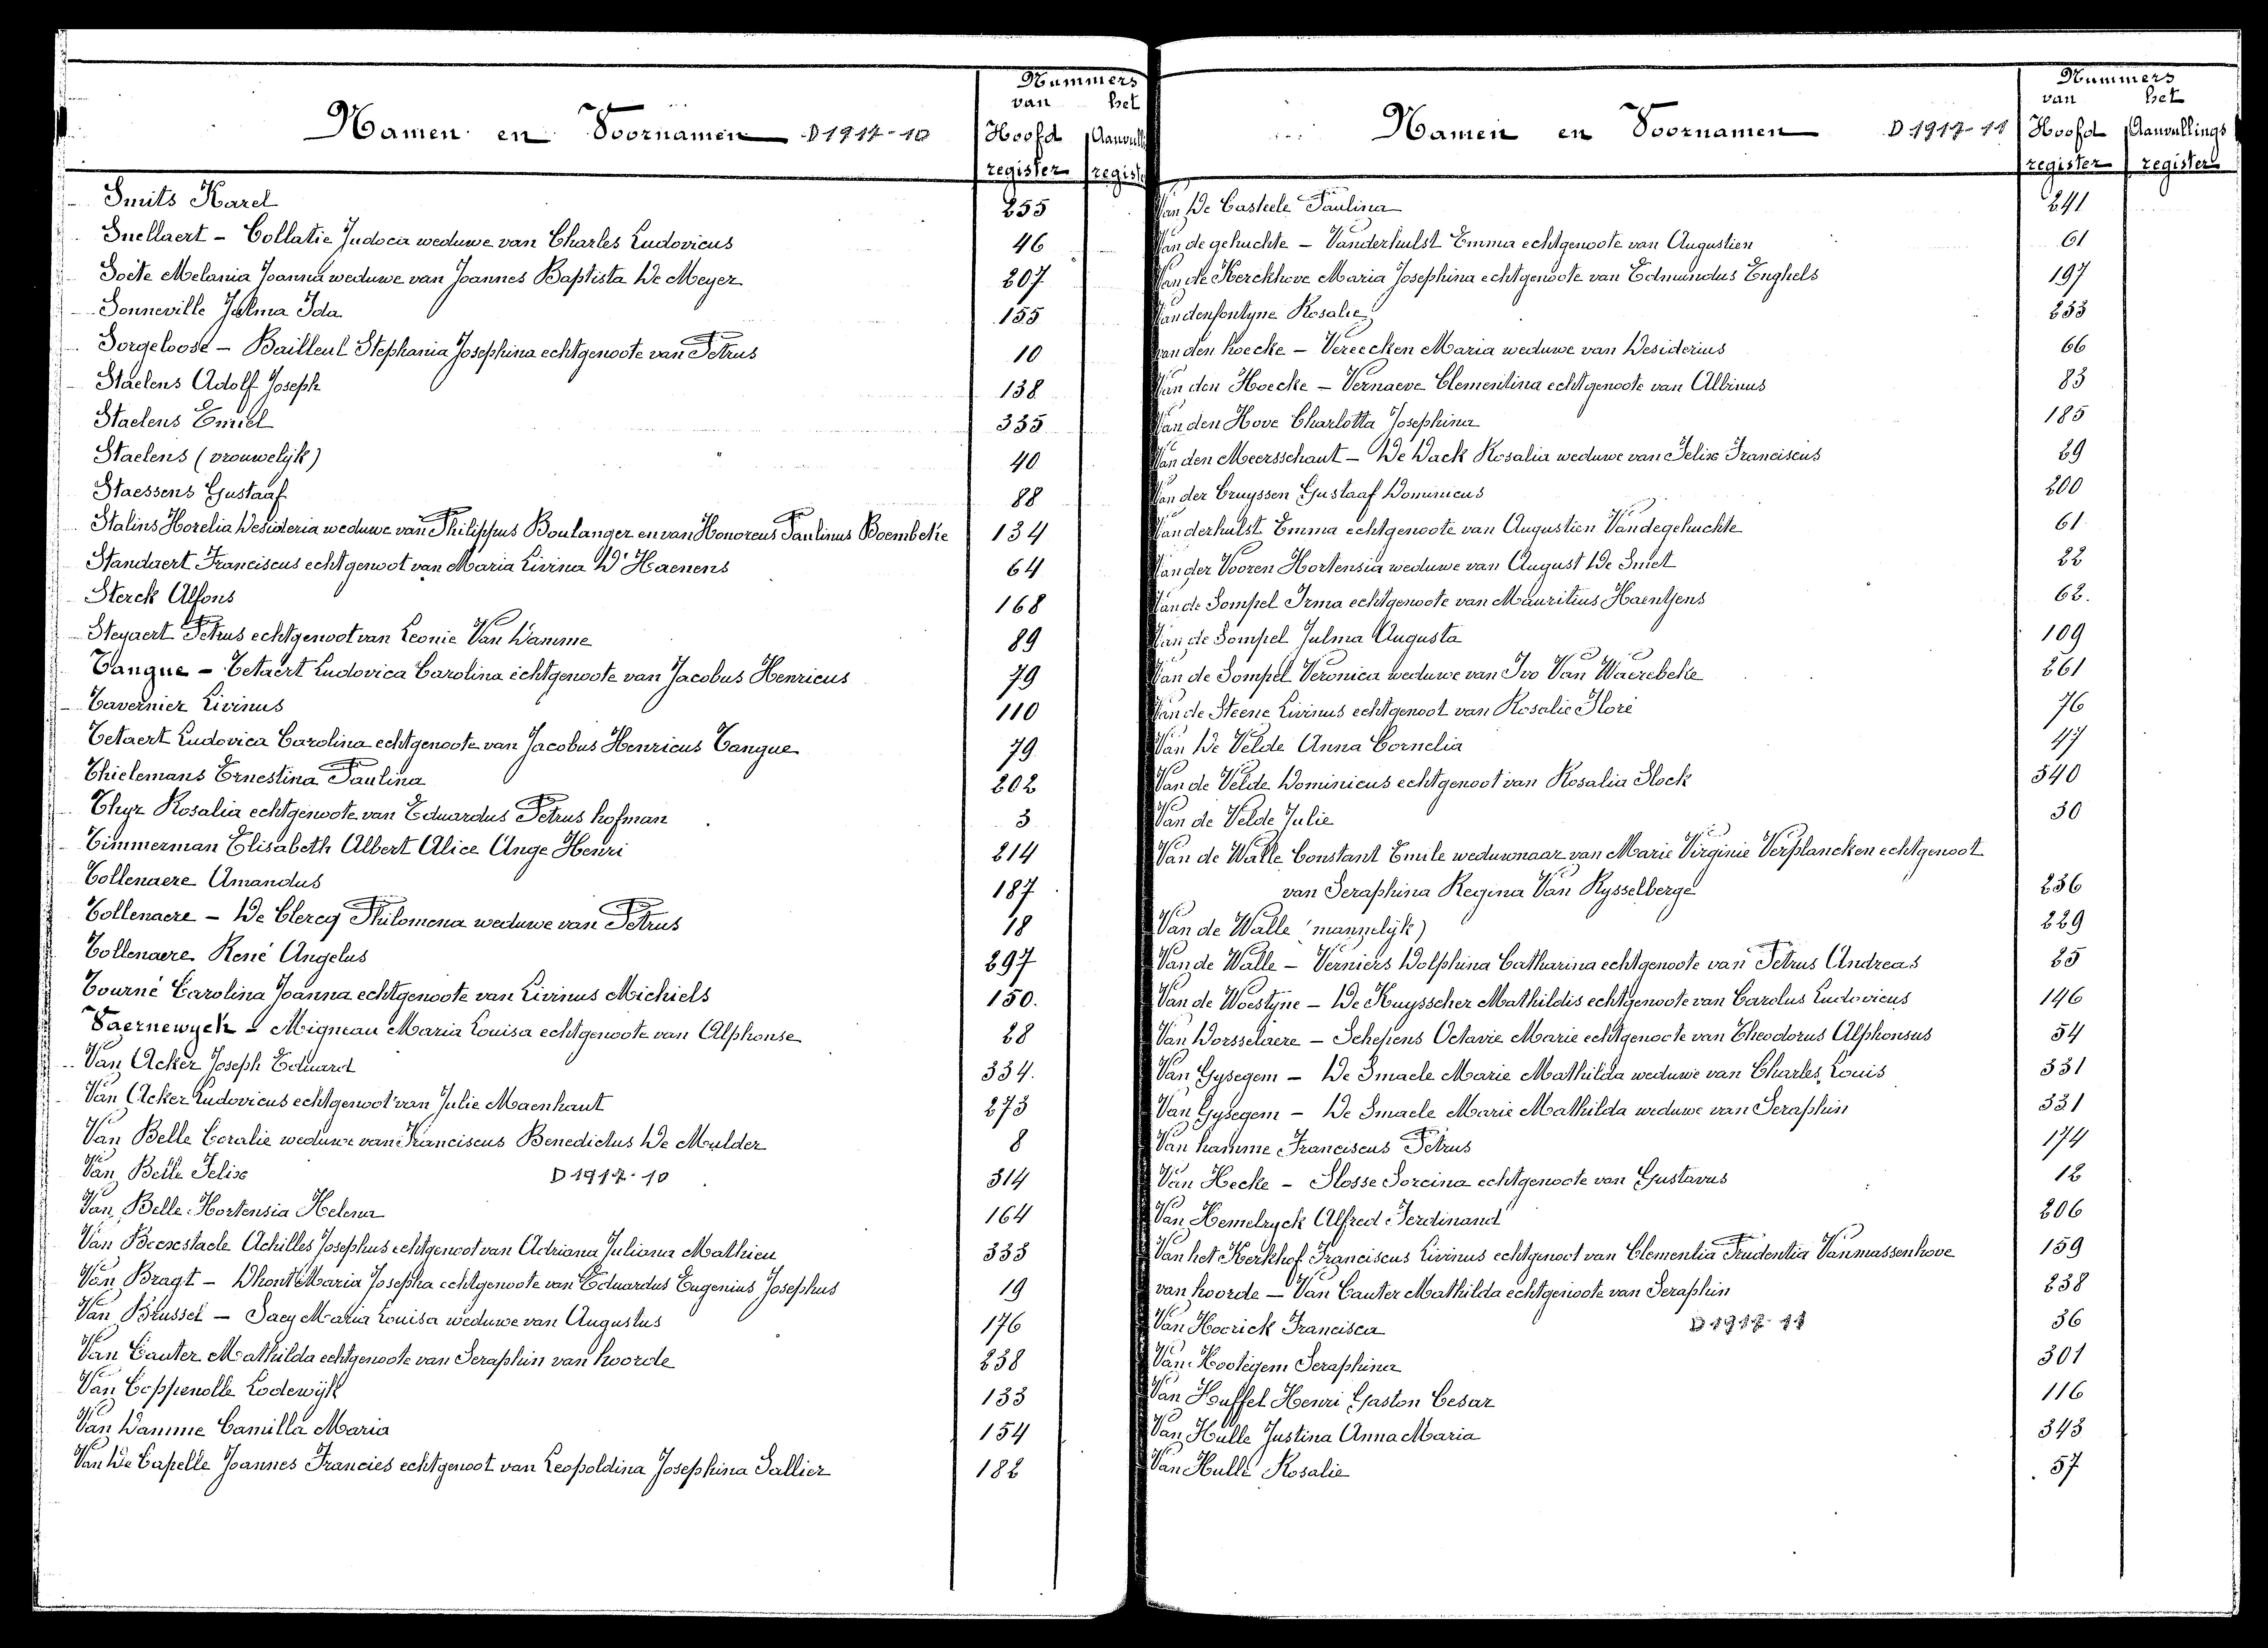 Namen en Voornamen D 1917-10
Nummers
van het
Hoofd Aanvull
register regist
Smits Karel 255
Snellaert - Collatie Judoca weduwe van Charles Ludovicus 46
Soete Melania Joanna weduwe van Joannes Baptista De Meyer 207
Sonneville Julma Ida 155
Sorgeloose - Bailleul Stephania Josephina echtgenoote van Petrus 10
Staelens Adolf Joseph 138
Staelens Emiel 335
Staelens (vrouwelijk) 40
Staessens Gustaaf 88
Stalins Horelia Desideria weduwe van Philippus Boulanger en van Honoreus Paulinus Boembeke 134
Standaert Franciscus echtgenoot van Maria Livina D'Haenens 64
Sterck Alfons 168
Steyaert Petrus echtgenoot van Leonie Van Damme 89
Tangue - Tetaert Ludovica Carolina echtgenoote van Jacobus Henricus 79
Tavernier Livinus 110
Tetaert Ludovica Carolina echtgenoote van Jacobus Henricus Tangue 79
Thielemans Ernestina Paulina 202
Thyr Rosalia echtgenoote van Eduardus Petrus hofman 3
Timmerman Elisabeth Albert Alice Ange Henri 214
Tollenaere Amandus 187
Tollenaere - De Clercq Philomena weduwe van Petrus 18
Tollenaere René Angelus 297
Tourné Carolina Joanna echtgenoote van Livinus Michiels 150.
Vaernewyck - Migneau Maria Louisa echtgenoote van Alphonse 28
Van Acker Joseph Eduard 334.
Van Acker Ludovicus echtgenoot van Julie Maenhaut 273
Van Belle Coralie weduwe van Franciscus Benedictus De Mulder 8
Van Belle Felix D 1917-10 314
Van Belle Hortensia Helena 164
Van Beerestaele Achilles Josephus echtgenoot van Adriana Juliana Mathieu 333
Van Bragt - Dhont Maria Josepha echtgenoote van Eduardus Eugenius Josephus 19
Van Brussel - Saey Maria Louisa weduwe van Augustus 176
Van Cauter Mathilda echtgenoote van Seraphin van hoorde 238
Van Coppenolle Lodewijk 133
Van Damme Camilla Maria 154
Van De Capelle Joannes Francies echtgenoot van Leopoldina Josephina Sallier 182
Namen en Voornamen D 1917-11
Nummers
van het
Hoofd Aanvullings
register register
Van De Casteele Paulina 241
Van de gehuchte - Vanderhulst Emma echtgenoote van Augustien 61
Van de Kerckhove Maria Josephina echtgenoote van Edmundus Enghels 197
Vandenfontyne Rosalie 253
van den hoecke - Vereecken Maria weduwe van Desiderius 66
Van den Hoecke - Vernaeve Clementina echtgenoote van Albinus 83
Van den Hove Charlotta Josephina 185
Van den Meersschaut - De Dack Rosalia weduwe van Felix Franciscus 29
Van der Cruyssen Gustaaf Dominicus 200
Vanderhulst Emma echtgenoote van Augustien Vandegehuchte 61
Van der Vooren Hortensia weduwe van August De Smet 22
Van de Sompel Irma echtgenoote van Mauritius Haentjens 62.
Van de Sompel Julma Augusta 109
Van de Sompel Veronica weduwe van Ivo Van Waerebeke 261
Van de Steene Livinus echtgenoot van Rosalie Floré 76
Van De Velde Anna Cornelia 47
Van de Velde Dominicus echtgenoot van Rosalia Slock 340
Van de Velde Julie 30
Van de Walle Constant Emile weduwnaar van Marie Virginie Verplancken echtgenoot
van Seraphina Regina Van Rysselberge 236
Van de Walle (mannelijk) 229
Van de Walle - Verniers Dolphina Catharina echtgenoote van Petrus Andreas 25
Van de Woestyne - De Kuysscher Mathildis echtgenoote van Carolus Ludovicus 146
Van Dorsselaere - Schepens Octavie Marie echtgenoote van Theodorus Alphonsus 54
Van Gysegem - De Smaele Marie Mathilda weduwe van Charles Louis 331
Van Gysegem - De Smaele Marie Mathilda weduwe van Seraphin 331
Van hamme Franciscus Petrus 174
Van Hecke - Slosse Sorcina echtgenoote van Gustavus 12
Van Hemelryck Alfred Ferdinand 206
Van het Kerkhof Franciscus Livinus echtgenoot van Clementia Prudentia Vanmassenhove 159
van hoorde - Van Cauter Mathilda echtgenoote van Seraphin 238
Van Hoorick Francisca D 1917-11 36
Van Hootegem Seraphina 301
Van Houffel Henri Gaston Cesar 116
Van Hulle Justina Anna Maria 343
Van Hulle Rosalie 57